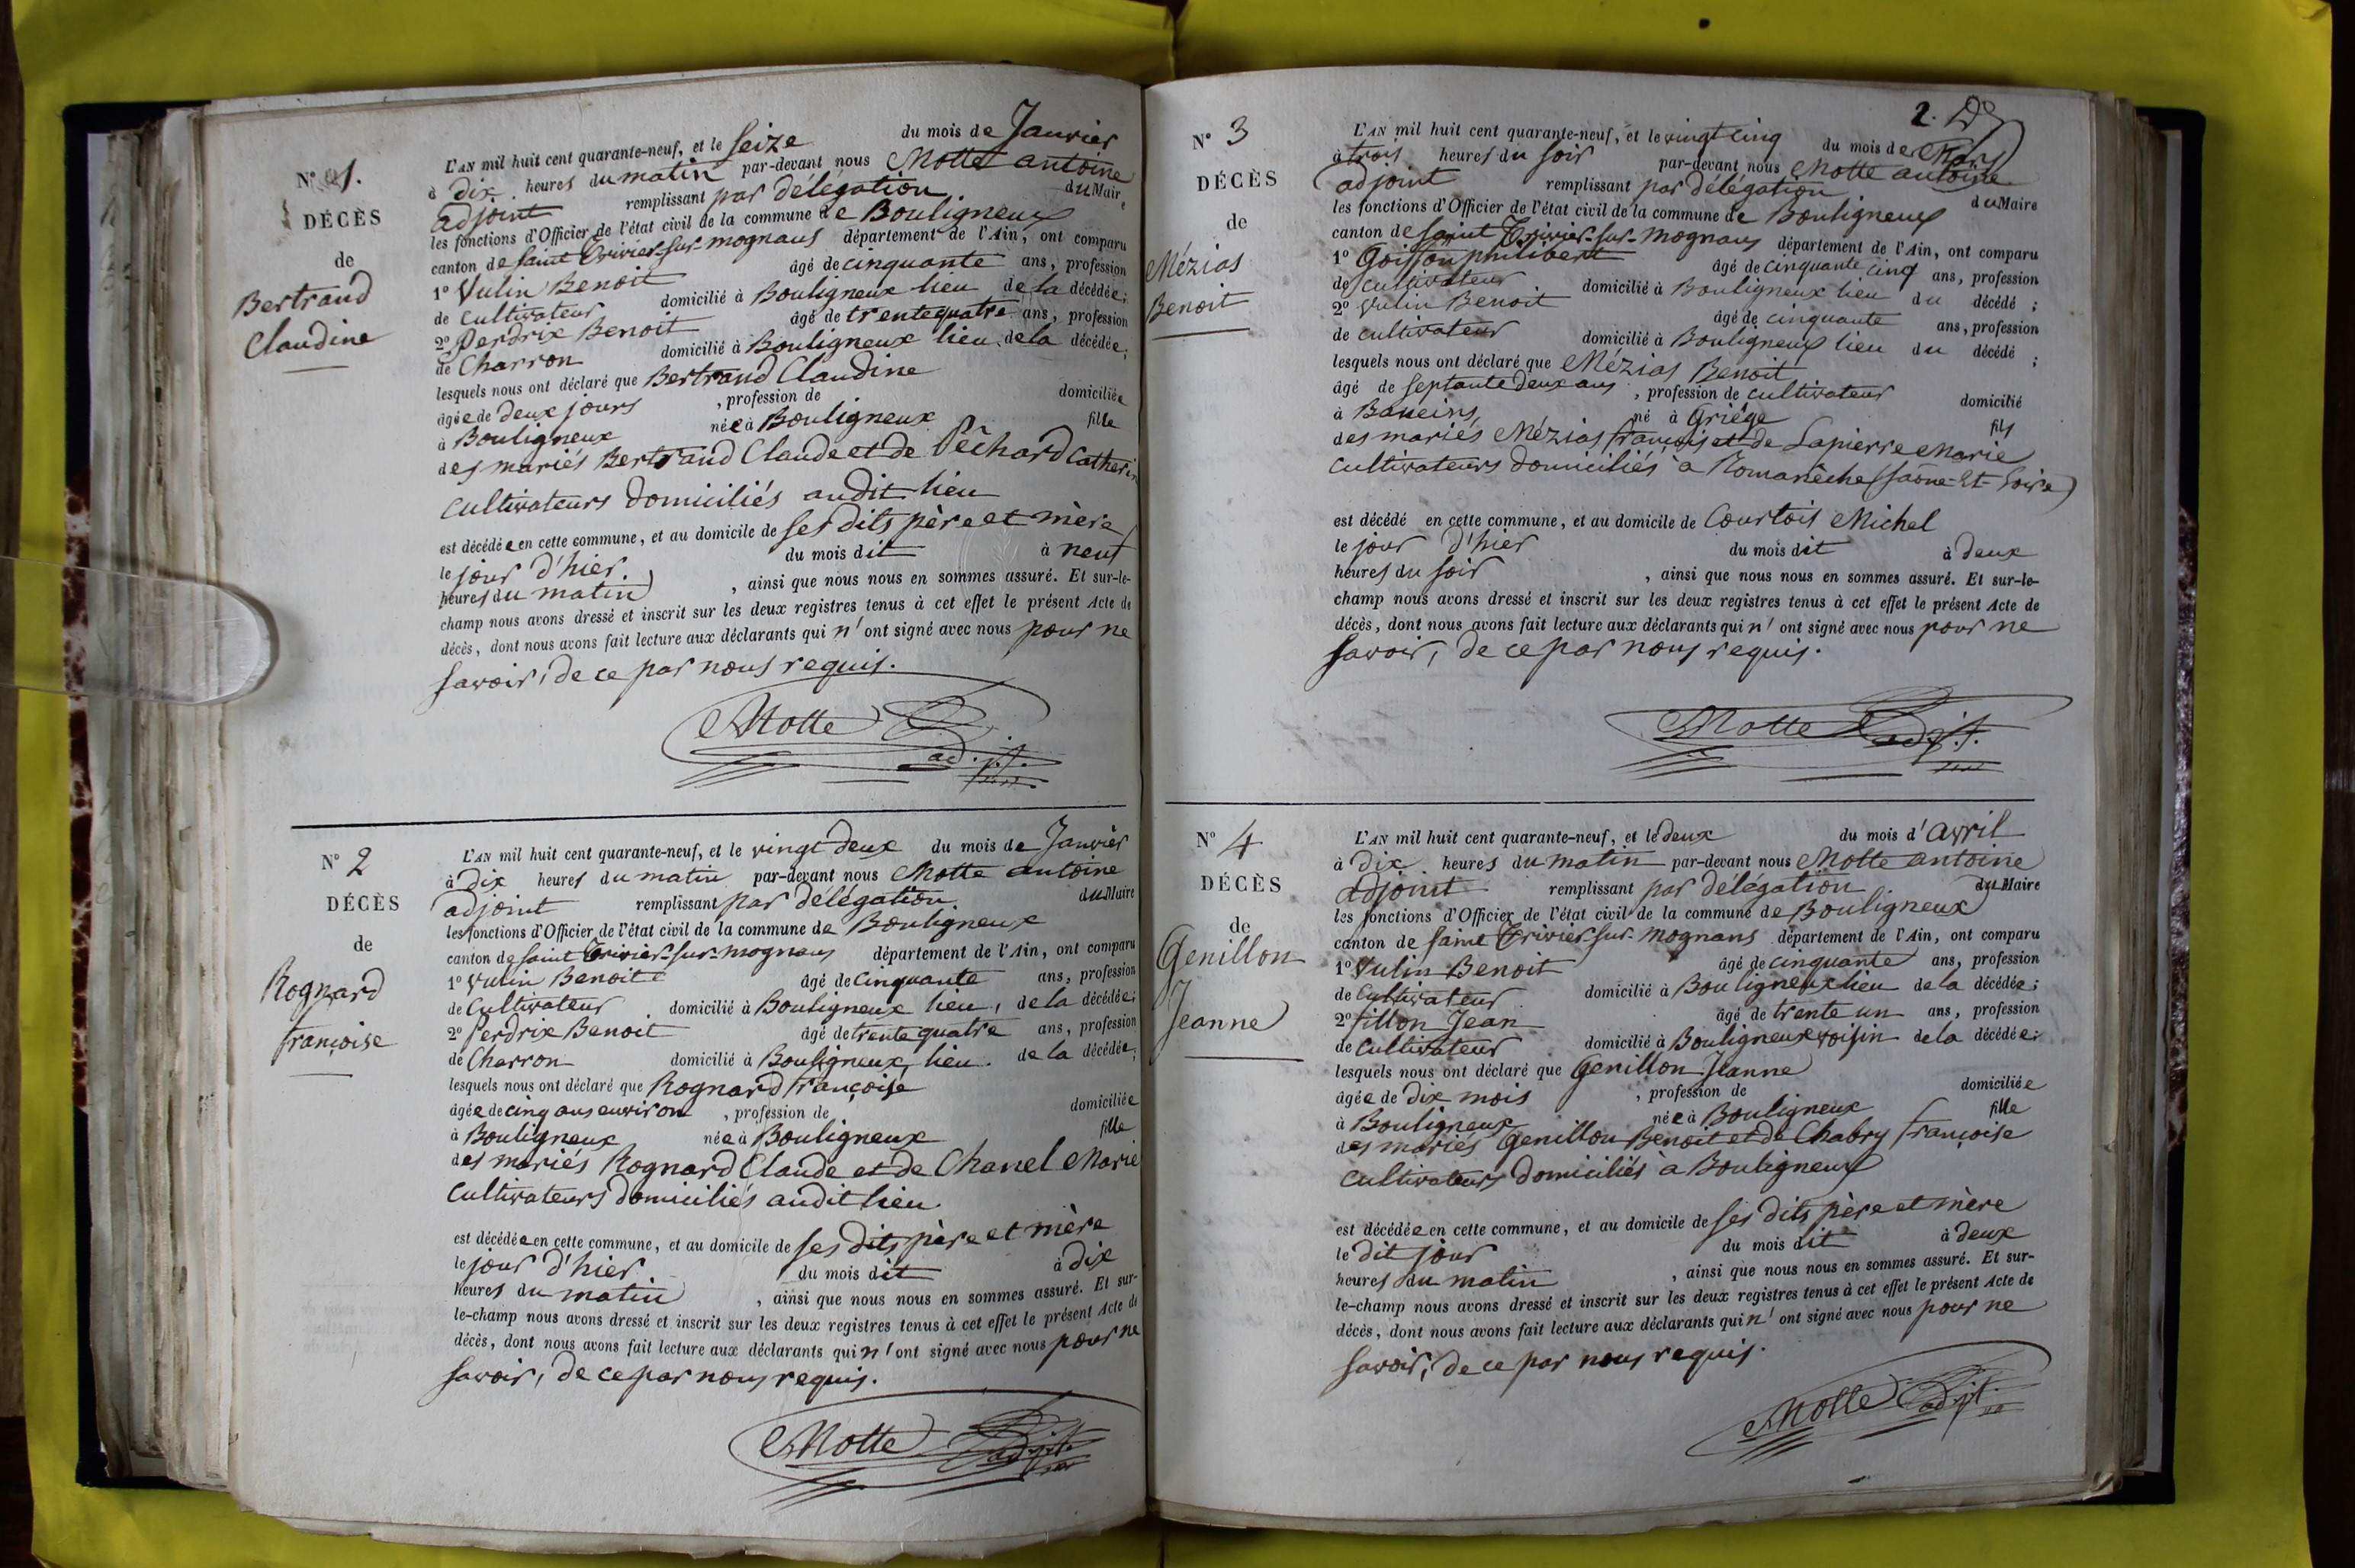 N° 1.
DÉCÈS
de
Bertrand
Claudine
L'AN mil huit cent quarante-neuf, et le seize du mois de Janvier
à dix heures du matin par-devant nous Motte antoine
adjoint remplissant par délégation du Maire
les fonctions d'Officier de l'état civil de la commune de Bouligneux
canton de saint Trivier-sur-mognans département de l'Ain, ont comparu
1° Vulin Benoit âgé de cinquante ans, profession
de cultivateur domicilié à Bouligneux lieu de la décédée;
2° Perdrix Benoit âgé de trente quatre ans, profession
de Charron domicilié à Bouligneux lieu de la décédée;
lesquels nous ont déclaré que Bertrand Claudine
âgée de deux jours , profession de domiciliée
à Bouligneux née à Bouligneux fille
des mariés Bertrand Claude et de Pêchard Catherin
cultivateurs domiciliés audit lieu
est décédée en cette commune, et au domicile de ses dits père et mère
le jour d'hier. du mois dit à neuf
heures du matin , ainsi que nous nous en sommes assuré. Et sur-le-
champ nous avons dressé et inscrit sur les deux registres tenus à cet effet le présent Acte de
décès, dont nous avons fait lecture aux déclarants qui n' ont signé avec nous pour ne
savoir, de ce par nous requis.
Motte
adj.t.
N° 2
DÉCÈS
de
Rognard
françoise
L'AN mil huit cent quarante-neuf, et le vingt deux du mois de Janvier
à dix heures du matin par-devant nous Motte antoine
adjoint remplissant par délégation du Maire
les fonctions d'Officier de l'état civil de la commune de Bouligneux
canton de saint Trivier-sur-mognans département de l'Ain, ont comparu
1° Vulin Benoit âgé de cinquante ans, profession
de cultivateur domicilié à Bouligneux lieu, de la décédée;
2° Perdrix Benoit âgé de trente quatre ans, profession
de Charron domicilié à Bouligneux, lieu. de la décédée;
lesquels nous ont déclaré que Rognard françoise
âgée de cinq ans environ , profession de domiciliée
à Bouligneux née à Bouligneux fille
des mariés Rognard Claude et de Chanel Marie
cultivateurs domiciliés audit lieu.
est décédée en cette commune, et au domicile de ses dits père et mère
le jour d'hier du mois dit à dix
heures du matin , ainsi que nous nous en sommes assuré. Et sur-
le-champ nous avons dressé et inscrit sur les deux registres tenus à cet effet le présent Acte de
décès, dont nous avons fait lecture aux déclarants qui n' ont signé avec nous pour ne
savoir, de ce par nous requis.
Motte
adj.t.
2.
N° 3
DÉCÈS
de
Mézias
Benoit
L'AN mil huit cent quarante-neuf, et le vingt cinq du mois de Mars
à trois heures du soir par-devant nous Motte antoine
adjoint remplissant par délégation du Maire
les fonctions d'Officier de l'état civil de la commune de Bouligneux
canton de saint Trivier-sur-mognans département de l'Ain, ont comparu
1° Goiffon philibert âgé de cinquante cinq ans, profession
de cultivateur domicilié à Bouligneux lieu du décédé ;
2° Vulin Benoit âgé de cinquante ans, profession
de cultivateur domicilié à Bouligneux lieu du décédé ;
lesquels nous ont déclaré que Mézias Benoit
âgé de septante deux ans , profession de cultivateur domicilié
à Baneins, né à Griége fils
des mariés Mézias françois et de Lapierre Marie
cultivateurs domiciliés à Romanêche (Saône-Et-Loire)
est décédé en cette commune, et au domicile de Courtois Michel
le jour d'hier du mois dit à deux
heures du soir , ainsi que nous nous en sommes assuré. Et sur-le-
champ nous avons dressé et inscrit sur les deux registres tenus à cet effet le présent Acte de
décès, dont nous avons fait lecture aux déclarants qui n' ont signé avec nous pour ne
savoir, de ce par nous requis.
Motte
adj.t.
N° 4
DÉCÈS
de
Genillon
Jeanne
L'AN mil huit cent quarante-neuf, et le deux du mois d'avril
à dix heures du matin par-devant nous Motte antoine
adjoint remplissant par délégation du Maire
les fonctions d'Officier de l'état civil de la commune de Bouligneux
canton de saint Trivier sur-mognans département de l'Ain, ont comparu
1° Vulin Benoit âgé de cinquante ans, profession
de cultivateur domicilié à Bouligneux lieu de la décédée;
2° fillon Jean âgé de trente un ans, profession
de cultivateur domicilié à Bouligneux voisin de la décédée;
lesquels nous ont déclaré que Genillon Jeanne
âgée de dix mois , profession de domiciliée
à Bouligneux née à Bouligneux fille
des mariés Genillon Benoit et de Chabry françoise
cultivateurs domiciliés à Bouligneux
est décédée en cette commune, et au domicile de ses dits père et mère
le dit jour du mois dit à deux
heures du matin , ainsi que nous nous en sommes assuré. Et sur-
le-champ nous avons dressé et inscrit sur les deux registres tenus à cet effet le présent Acte de
décès, dont nous avons fait lecture aux déclarants qui n' ont signé avec nous pour ne
savoir, de ce par nous requis.
Motte
adj.t.